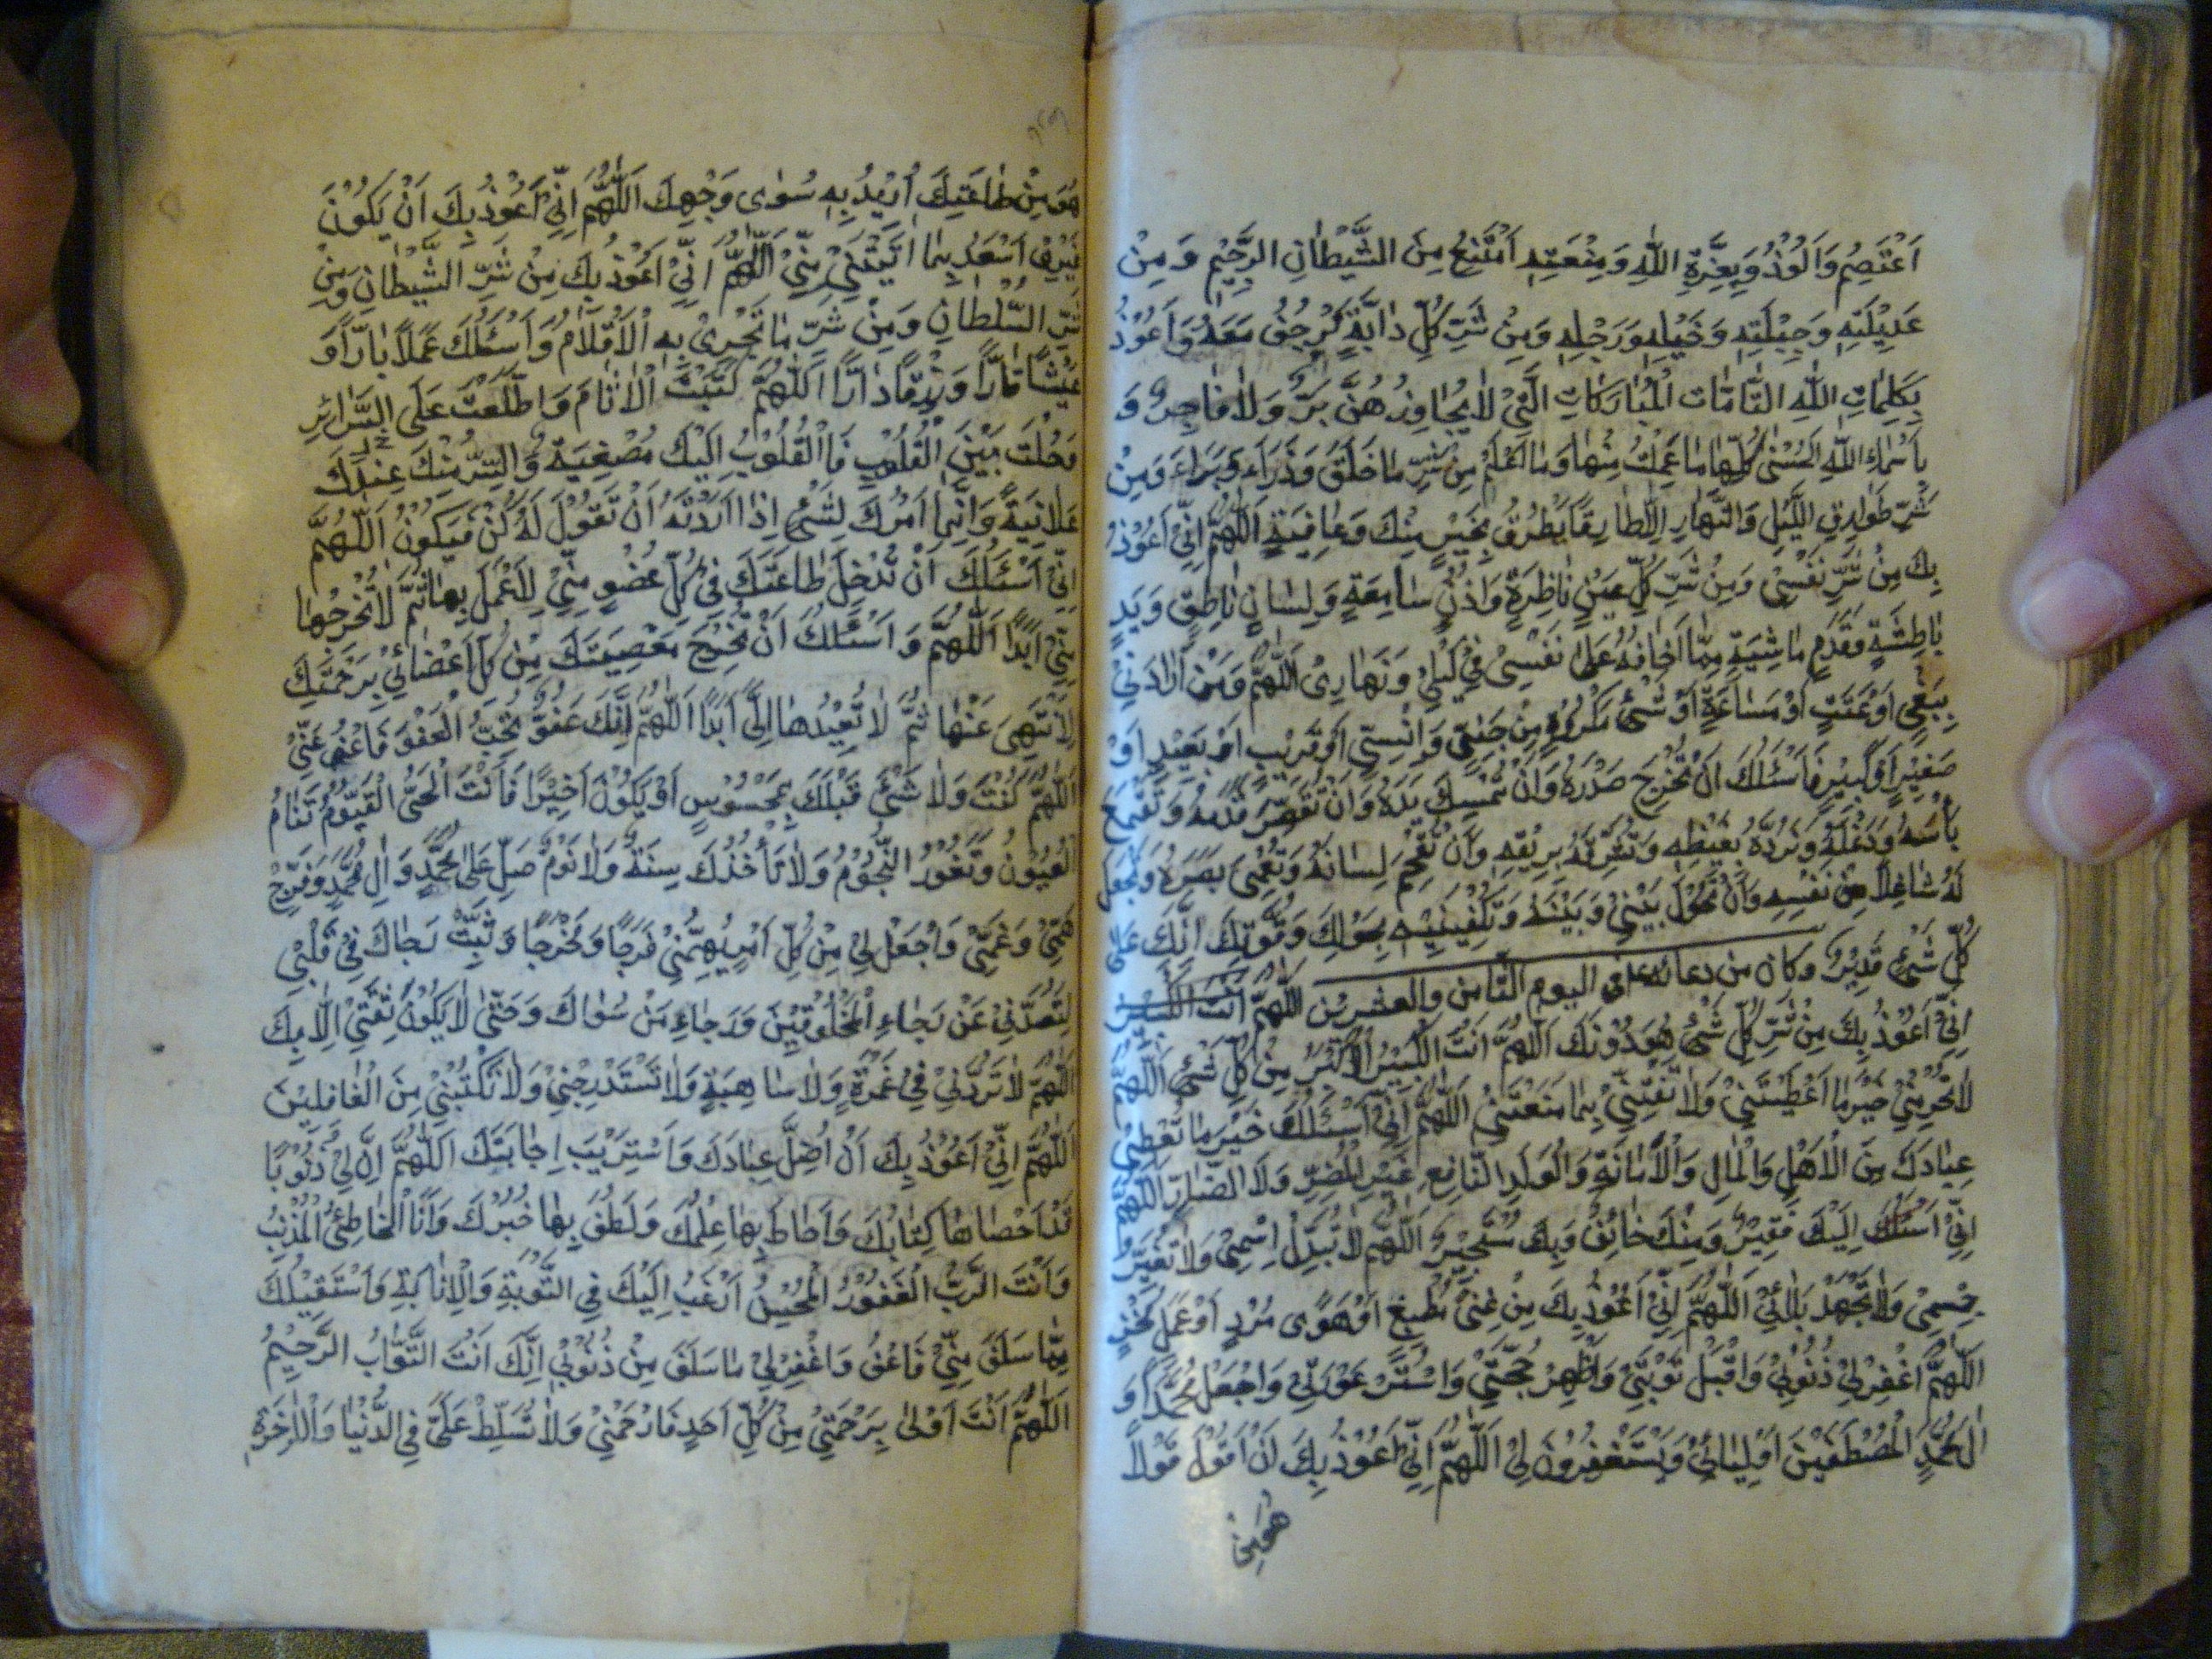 اَعْتَصِمُ وَاَلُوذُ وَبِعِزَّةِ اللّٰهِ وَمِنْعَتِهِ اَمْتَنِعُ مِنَ الشَّيْطٰانِ الرَّجِيْمِ وَ مِنْ
عَدِيْلَتِهِ وَحِيْلَتِهِ وَخَيْلِهِ وَرَجِلِهِ وَمِنْ شَرِّ كُلِّ دٰابَّةٍ تَرْجُفُ مَعَهُ وَاَعُوْذُ
بِكَلِمٰاتِ اللّٰهِ التّٰامّٰاتِ الْمُبٰارَكٰاتِ الَّتِيْ لٰا يُجٰاوِزُهُنَّ بَرٌّ وَلٰا فٰاجِرٌ وَ
بِاَسْمٰاءِ اللّٰهِ الْحُسْنٰى كُلِّهٰا مٰا عَلِمْتُ مِنْهٰا وَمٰا لَمْ اَعْلَمْ مِنْ شَرِّ مٰا خَلَقَ وَذَرَاَ وَبَرَاَ وَمِنْ
شَرِّ طَوٰارِقِ اللَّيْلِ وَالنَّهٰارِ اِلّٰا طٰارِقًا يَطْرُقُ بِخَيْرٍ مِنْكَ وَعٰافِيَةٍ اَللّٰهُمَّ اِنِّيْ اَعُوْذُ
بِكَ مِنْ شَرِّ نَفْسِيْ وَمِنْ شَرِّ كُلِّ عَيْنٍ نٰاظِرَةٍ وَاُذُنٍ سٰامِعَةٍ وَلِسٰانٍ نٰاطِقٍ وَيَدٍ
بٰاطِشَةٍ وَقَدَمٍ مٰاشِيَةٍ مِمّٰا اَخٰافُهُ عَلٰى نَفْسِيْ فِيْ لَيْلِيْ وَنَهٰارِيْ اَللّٰهُمَّ وَمَنْ اَرٰادَنِيْ
بِبَغْيٍ اَوْ عَنَتٍ اَوْ مَسٰاءَةٍ اَوْ شَيْءٍ مَكْرُوْهٍ مِنْ جِنِّيٍّ وَاِنْسِيٍّ اَوْ قَرِيْبٍ اَوْ بَعِيْدٍ اَوْ
صَغِيْرٍ اَوْ كَبِيْرٍ فَاَسْئَلُكَ اَنْ تُحْرِجَ صَدْرَهُ وَاَنْ تُمْسِكَ يَدَهُ وَاَنْ تُقَصِّرَ قَدَمَهُ وَتَقْمَعَ
بَأْسَهُ وَدَغَلَهُ وَتَرُدَّهُ بِغَيْظِهِ وَتُشْرِقَهُ بِرِيْقِهِ وَاَنْ تُفْحِمَ لِسٰانَهُ وَتُعْمِيَ بَصَرَهُ وَتَجْعَلَ
لَهُ شٰاغِلًا مِنْ نَفْسِهِ وَاَنْ تَحُوْلَ بَيْنِيْ وَبَيْنَهُ وَتَكْفِيَنِيْهِ بِحَوْلِكَ وَقُوَّتِكَ اِنَّكَ عَلٰى
كُلِّ شَيْءٍ قَدِيْرٌ وكان من دعائه ع في اليوم الثامن والعشرين اللّٰهُمَّ اَنْتَ الكبير
اِنِّيْ اَعُوْذُ بِكَ مِنْ شَرِّ كُلِّ شَيْءٍ هُوَ دُوْنَكَ اَللّٰهُمَّ اَنْتَ الْكَبِيْرُ الْاَكْبَرُ مِنْ كُلِّ شَيْءٍ اَللّٰهُمَّ
لٰا تَحْرِمْنِيْ خَيْرَ مٰا اَعْطَيْتَنِيْ وَلٰا تَفْتِنِّيْ بِمٰا مَنَعْتَنِيْ اَللّٰهُمَّ اِنِّيْ اَسْئَلُكَ خَيْرَ مٰا تُعْطِيْ
عِبٰادَكَ مِنَ الْاَهْلِ وَالْمٰالِ وَالْاَمٰانَةِ وَالْوَلَدِ النّٰافِعِ غَيْرِ الْمُضِرِّ وَلَا الضّٰارِّ اَللّٰهُمَّ
اِنِّيْ اِلَيْكَ فَقِيْرٌ وَمِنْكَ خٰائِفٌ وَبِكَ مُسْتَجِيْرٌ اَللّٰهُمَّ لٰا تُبَدِّلْ اِسْمِيْ وَلٰا تُغَيِّرْ
جِسْمِيْ وَلٰا تُجْهِدْ بَلٰائِيْ اَللّٰهُمَّ اِنِّيْ اَعُوْذُ بِكَ مِنْ غِنًى مُطْغٍ اَوْ هَوًى مُرْدٍ اَوْ عَمَلٍ مُخْزٍ
اَللّٰهُمَّ اغْفِرْ لِيْ ذُنُوْبِيْ وَاقْبَلْ تَوْبَتِيْ وَاَظْهِرْ حُجَّتِيْ وَاسْتُرْ عَوْرَتِيْ وَاجْعَلْ مُحَمَّدًا وَ
اٰلَ مُحَمَّدٍ الْمُصْطَفَيْنَ اَوْلِيٰائِيْ وَيَسْتَغْفِرُوْنَ لِيْ اَللّٰهُمَّ اِنِّيْ اَعُوْذُ بِكَ اَنْ اَقُوْلَ قَوْلًا
هُوَ مِنْ
هُوَ مِنْ طٰاعَتِكَ اُرِيْدُ بِهِ سُوٰى وَجْهِكَ اَللّٰهُمَّ اِنِّيْ اَعُوْذُ بِكَ اَنْ يَكُوْنَ
غَيْرِيْ اَسْعَدَ بِمٰا اٰتَيْتَنِيْ مِنِّيْ اَللّٰهُمَّ اِنِّيْ اَعُوْذُ بِكَ مِنْ شَرِّ الشَّيْطٰانِ وَمِنْ
شَرِّ السُّلْطٰانِ وَمِنْ شَرِّ مٰا تَجْرِيْ بِهِ الْاَقْلٰامُ وَاَسْئَلُكَ عَمَلًا بٰارًّا وَ
عَيْشًا قٰارًّا وَرِزْقًا دٰارًّا اَللّٰهُمَّ كَتَبْتَ الْاٰثٰامَ وَاطَّلَعْتَ عَلَى السَّرٰائِرِ
وَحُلْتَ بَيْنَ الْقُلُوْبِ فَالْقُلُوْبُ اِلَيْكَ مُصْغِيَةٌ وَالسِّرُّ مِنْكَ عِنْدَكَ
عَلٰانِيَةٌ وَاِنَّمٰا اَمْرُكَ لِشَيْءٍ اِذٰا اَرَدْتَهُ اَنْ تَقُوْلَ لَهُ كُنْ فَيَكُوْنُ اَللّٰهُمَّ
اِنِّيْ اَسْئَلُكَ اَنْ تُدْخِلَ طٰاعَتَكَ فِيْ كُلِّ عُضْوٍ مِنِّيْ لِاَعْمَلَ بِهٰا ثُمَّ لٰا تُخْرِجُهٰا
مِنِّيْ اَبَدًا اَللّٰهُمَّ وَ اَسْئَلُكَ اَنْ تُخْرِجَ مَعْصِيَتَكَ مِنْ كُلِّ اَعْضٰائِيْ بِرَحْمَتِكَ
لِاَنْتَهِيَ عَنْهٰا ثُمَّ لٰا تُعِيْدُهٰا اِلَيَّ اَبَدًا اَللّٰهُمَّ اِنَّكَ عَفُوٌّ تُحِبُّ الْعَفْوَ فَاعْفُ عَنِّيْ
اَللّٰهُمَّ كُنْتَ وَلٰا شَيْءَ قَبْلَكَ بِمَحْسُوْسٍ اَوْ يَكُوْنُ اَخِيْرًا فَاَنْتَ الْحَيُّ الْقَيُّوْمُ تَنٰامُ
الْعُيُوْنُ وَتَغُوْرُ النُّجُوْمُ وَلٰا تَأْخُذُكَ سِنَةٌ وَلٰا نَوْمٌ صَلِّ عَلٰى مُحَمَّدٍ وَاٰلِ مُحَمَّدٍ وَفَرِّجْ
هَمِّيْ وَغَمِّيْ وَاجْعَلْ لِيْ مِنْ كُلِّ اَمْرٍ يُهِمُّنِيْ فَرَجًا وَمَخْرَجًا وَثَبِّتْ رَجٰاكَ فِيْ قَلْبِيْ
لِتَصُدَّنِيْ عَنْ رَجٰاءِ الْمَخْلُوْقِيْنَ وَرَجٰاءِ مَنْ سُوٰاكَ وَحَتّٰى لٰا يَكُوْنَ ثِقَتِيْ اِلّٰا بِكَ
اَللّٰهُمَّ لٰا تَرُدَّنِيْ فِيْ غَمْرَةٍ وَلٰا سٰاهِيَةٍ وَلٰا تَسْتَدْرِجْنِيْ وَلٰا تَكْتُبْنِيْ مِنَ الْغٰافِلِيْنَ
اَللّٰهُمَّ اِنِّيْ اَعُوْذُ بِكَ اَنْ اُضِلَّ عِبٰادَكَ وَاَسْتَرِيْبَ اِجٰابَتَكَ اَللّٰهُمَّ اِنَّ لِيْ ذُنُوْبًا
قَدْ اَحْصٰاهٰا كِتٰابُكَ وَاَحٰاطَ بِهٰا عِلْمُكَ وَلَطُفَ بِهٰا خُبْرُكَ وَاَنَا الْخٰاطِئُ الْمُذْنِبُ
وَاَنْتَ الرَّبُّ الْغَفُوْرُ الْمُحْسِنُ اَرْغَبُ اِلَيْكَ فِي التَّوْبَةِ وَالْاِنٰابَةِ وَاَسْتَقِيْلُكَ
مِمّٰا سَلَفَ مِنِّيْ فَاعْفُ وَاغْفِرْ لِيْ مٰا سَلَفَ مِنْ ذُنُوْبِيْ اِنَّكَ اَنْتَ التَّوّٰابُ الرَّحِيْمُ
اَللّٰهُمَّ اَنْتَ اَوْلٰى بِرَحْمَتِيْ مِنْ كُلِّ اَحَدٍ فَارْحَمْنِيْ وَلٰا تُسَلِّطْ عَلَيَّ فِي الدُّنْيٰا وَالْاٰخِرَةِ